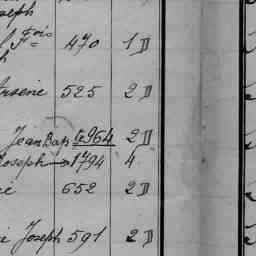 oseph
Fois 470 1 D
h
Arsene 525 2 D
Jean Bap 6964 2 D
Joseph → 1794 4
652 2 D
Joseph 591 2 D